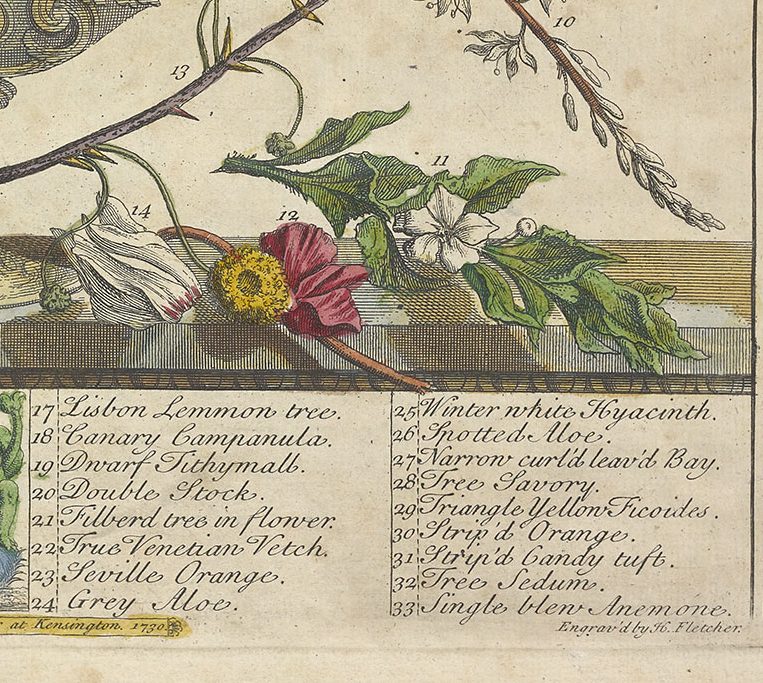 10
13
11
14
12
17 Lisbon Lemmon tree.
18 Canary Campanula.
19 Dwarf Tithymall.
20 Double Stock.
21 Filberd tree in flower.
22 True Venetian Vetch.
23 Seville Orange.
24 Grey Aloe.
at Kensington. 1730.
25 Winter white Hyacinth.
26 Spotted Aloe.
27 Narrow curl'd leav'd Bay.
28 Tree Savory.
29 Triangle Yellow Ficoides.
30 Strip'd Orange.
31 Strip'd Candy tuft.
32 Tree Sedum.
33 Single blew Anemone.
Engrav'd by H. Fletcher.